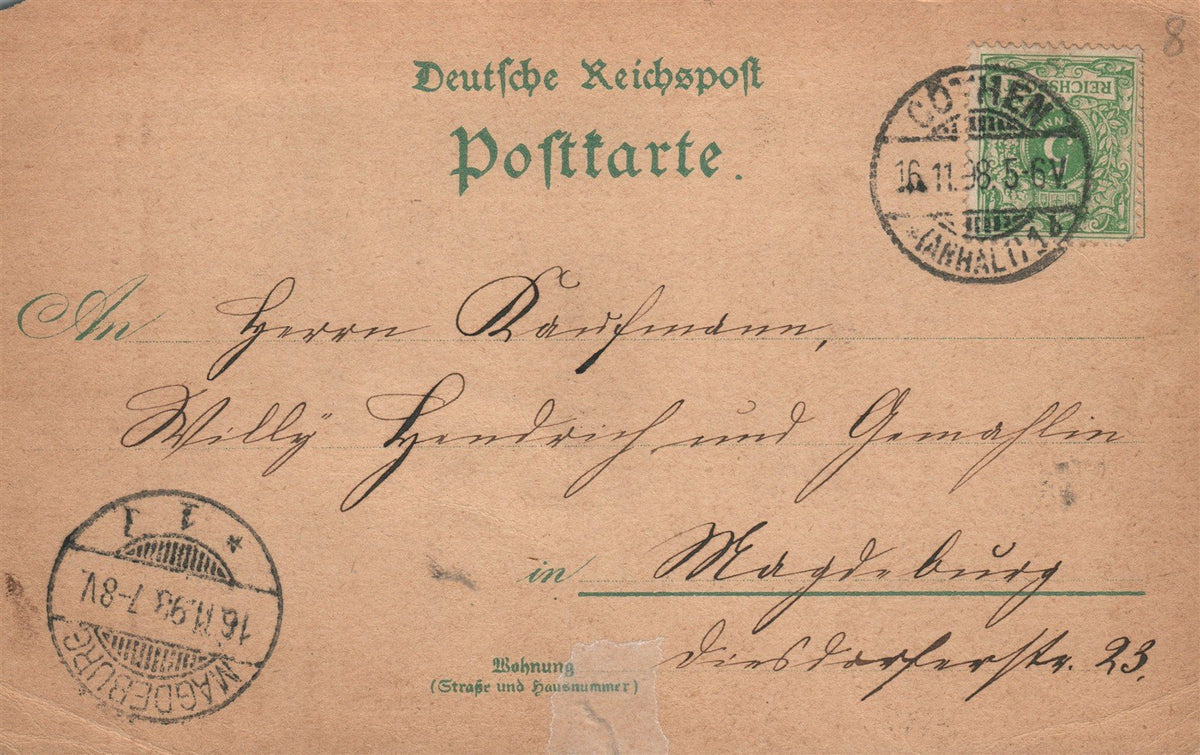 8
Deutsche Reichspost
Postkarte.
CÖTHEN
16.11.98. 5-6V.
*(ANHALT) 1 b
REICHSP
An Herrn Kaufmann,
Willy Hendrich und Gemahlin
in Magdeburg
Diesdorferstr. 23.
Wohnung
(Straße und Hausnummer)
* 1 1
16.11.98. 7-8V.
MAGDEBURG